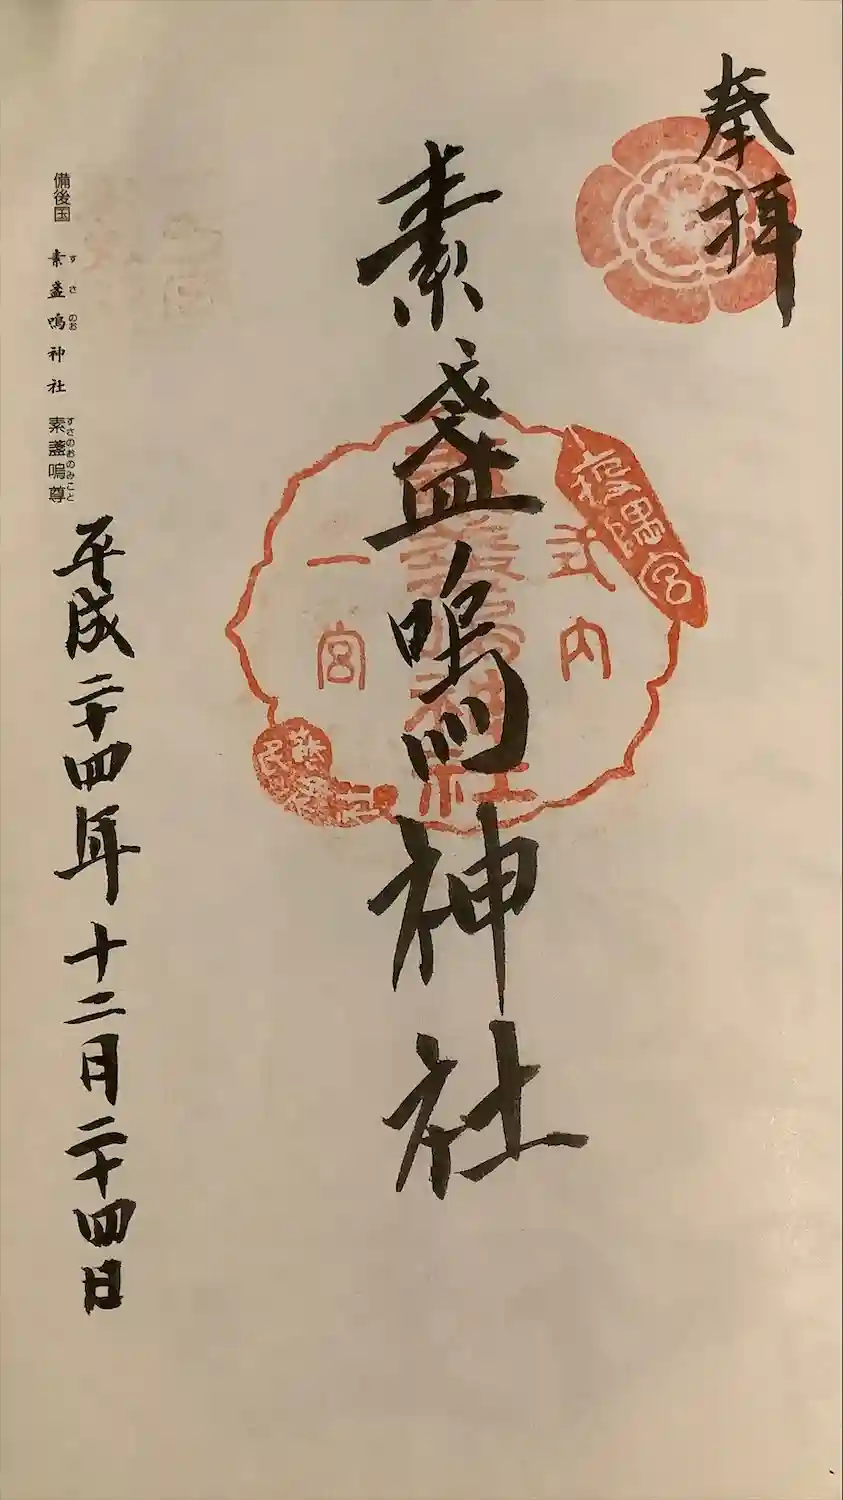 奉拝
素盞嗚神社
式内
素盞嗚神社
一宮
備後国 素盞嗚神社 素盞嗚尊
す さ のお
すさのおのみこと
平成二十四年十二月二十四日